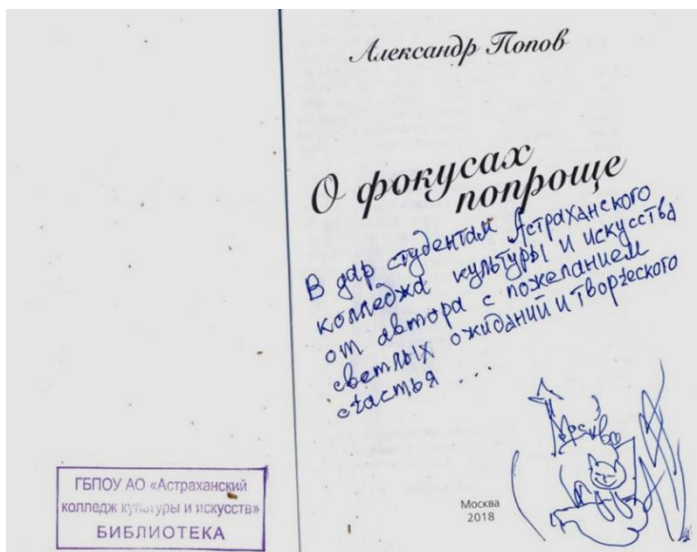 Александр Попов
О фокусах
попроще
В дар студентам Астраханского
колледжа культуры и искусства
от автора с пожеланием
светлых ожиданий и творческого
счастья ...
Москва
Москва
2018
ГБПОУ АО «Астраханский
колледж культуры и искусств»
БИБЛИОТЕКА